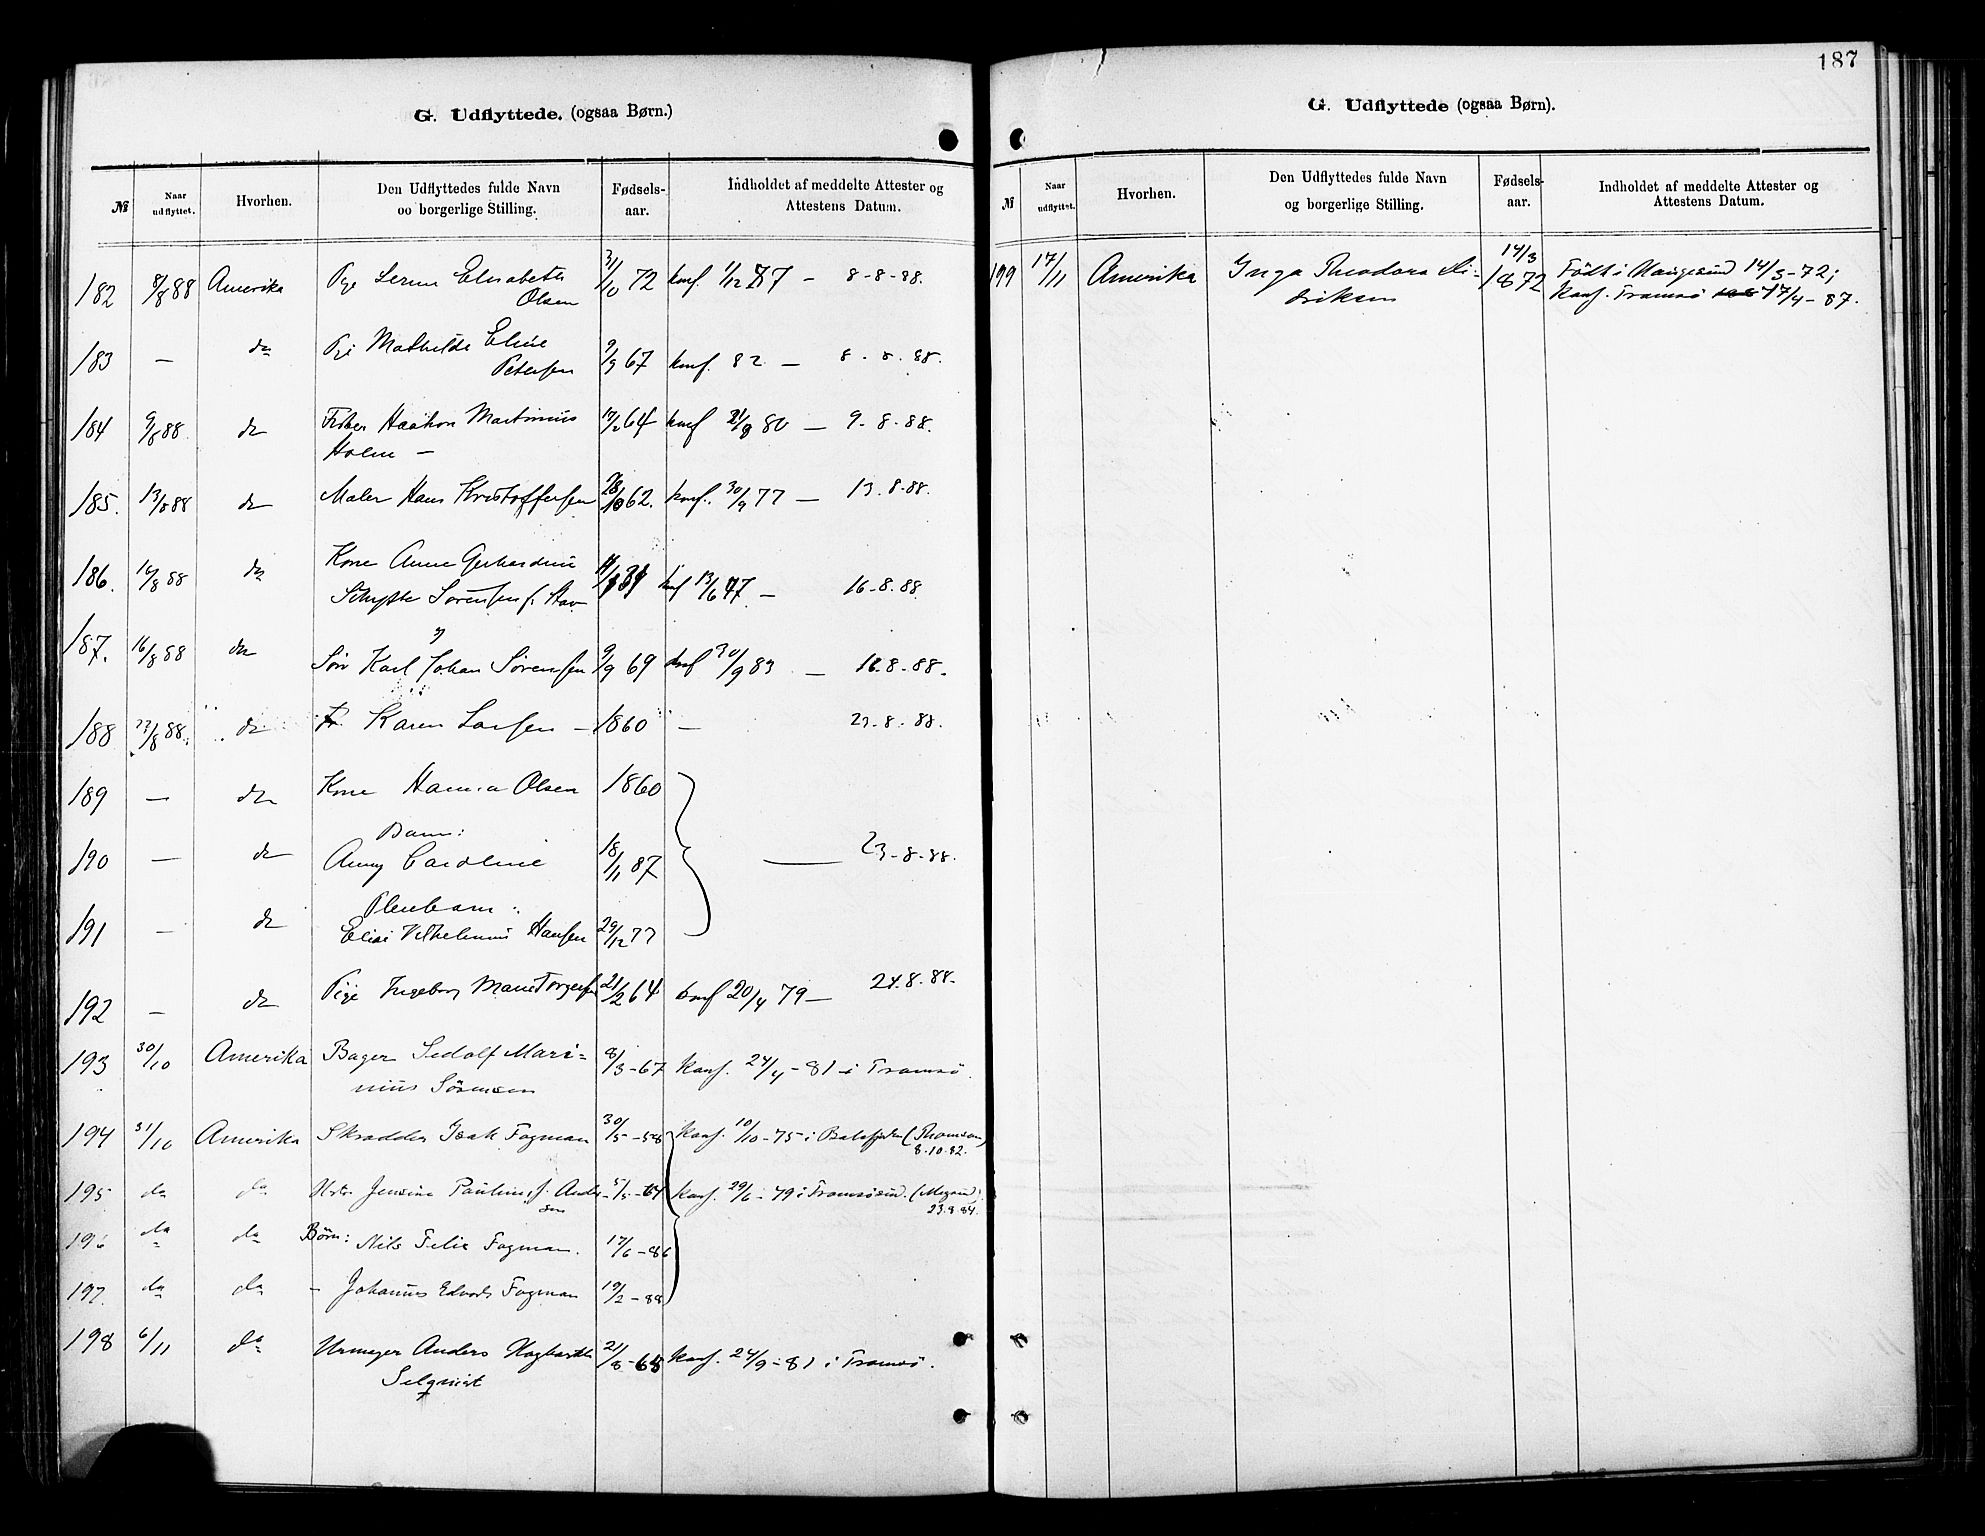 187
G. Udflyttede. (ogsaa Børn.)
№ Naar udflyttet. Hvorhen. Den Udflyttedes fulde Navn oo borgerlige Stilling. Fødsels-aar. Indholdet af meddelte Attester og Attestens Datum.
182 8/8 88 Amerika Pge Elisabeth 31/10 72 konf. 1/12 87 — 8-8-88.
Olsen
183 — do Mathilde Eline 9/9 67 konf. 82 — 8-8-88.
Petersen
184 9/8 88. do Haakon Martinius 17/2 64 konf 80 — 9-8-88.
Holm —
185. 13/8 88 do Maler Hans Kristoffersen 62. konf. 30/9 77 — 13.8-88.
186. 16/8 88 do Kone Anne Gerhardine konf 13/6 47 — 16-8-88
Schytte Sørensen f.
187. 16/8 88 do Søn Karl Johan Sørensen 9/9 69 konf 30/9 83 — 16.8-88.
188 23/8 88. do Karen Larsen — 1860 — 23-8-88.
189 — do Kone Hanna Olsen 1860
Barn:
190 — do Anny Caroline 18/11 87 — 23-8-88.
Pleiebarn:
191 — do Hansen 29/12 77
192 — do Pige Ingeborg Marie Torgersen 21/2 64 konf 20/4 79 — 24.8.88.
193 30/10 Amerika Bager Sedolf Mari=
nius Sørensen 8/3-67 Konf. 24/4-81 i Tromsø.
194 31/10 Amerika Skrædder Isak Fagman 30/5-58 Konf. 10/10-75 i Balsfjorden (Tromsøen)
8.10.82.
195 do do Hstr Jensine Pauline f. Ander
sen 5/5-64 Konf. 29/6-79 i Tromsøsund.
23.8.84.
196 do do Børn: Nils Felix Fagman. 17/6-86
197. do do — Johannes Edvard Fagman 19/2-88
198 6/11 do Urmager Anders Hagbarth 21/8-65 Konf. 24/9-81 i Tromsø.
Selqvist
G. Udflyttede (ogsaa Børn).
№ Naar udflyttet. Hvorhen. Den Udflyttedes fulde Navn og borgerlige Stilling. Fødsels-aar. Indholdet af meddelte Attester og Attestens Datum.
199 17/11 Amerika Inga Theodora Di-
driksen 14/3 1872 Født i Haugesund 14/3-72;
Konf. Tromsø 17/4-87.